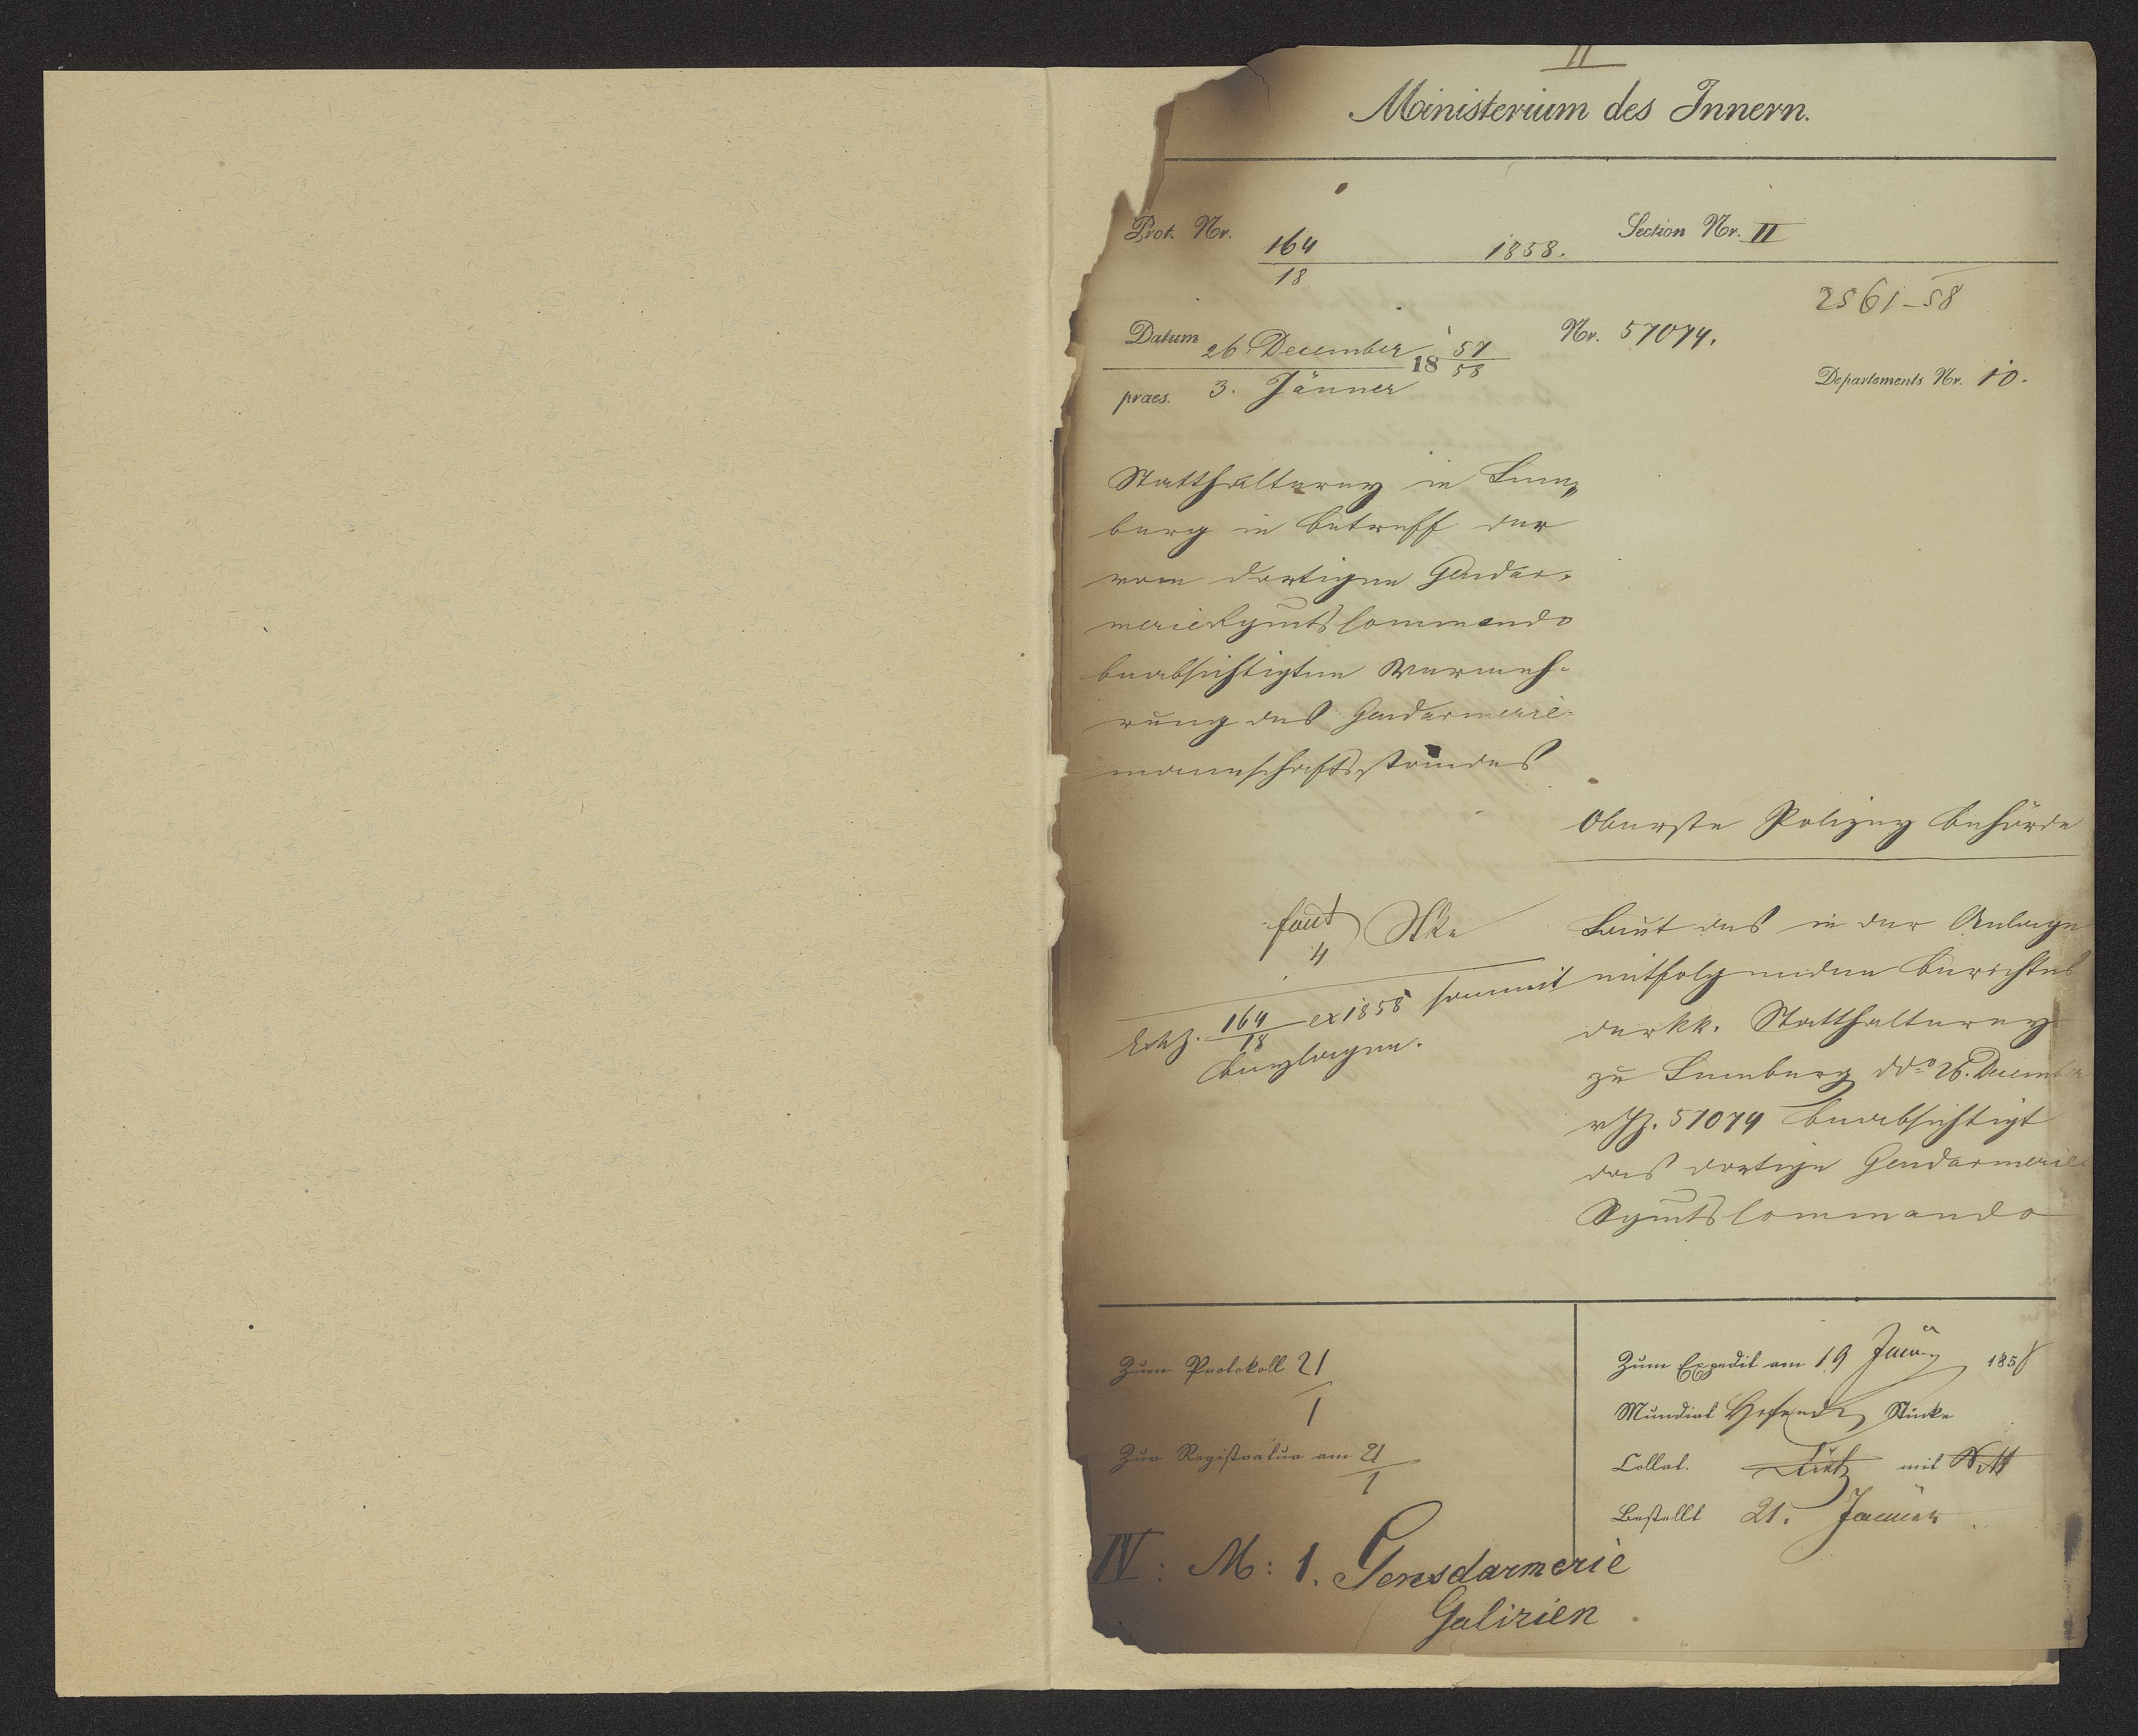 II
Ministerium des Innern.
Prot. Nr. 164/18 1858. Section Nr. II
2561-58
Datum 26. December 18 57/58 Nr. 57074.
praes. 3. Jänner
Departements Nr. 10.
Statthalterey in Lem-
berg in betreff der
vom dortigen Gendar-
merieRgmtsCommando
beabsichtigten Vermeh-
rung des Gendarmerie-
mannschaftsstandes
Oberste Polizey behörde
4
164/18 ex 1858 sammt
beylagen.
Laut des in der Anlage
mitfolgenden berichtes
der kk. Statthalterey
zu Lemberg ddo 26. December
Z. 57074 beabsichtigt
das dortige Gendarmerie
RgmtsCommando
Zum Protokoll 21/1
Zur Registratur am 21/1
Zum Expedit am 19 1858
Mundirt Stücke
Collat. mit
Bestellt 21. Januar
IV: M: 1. Gensdarmerie
Galizien